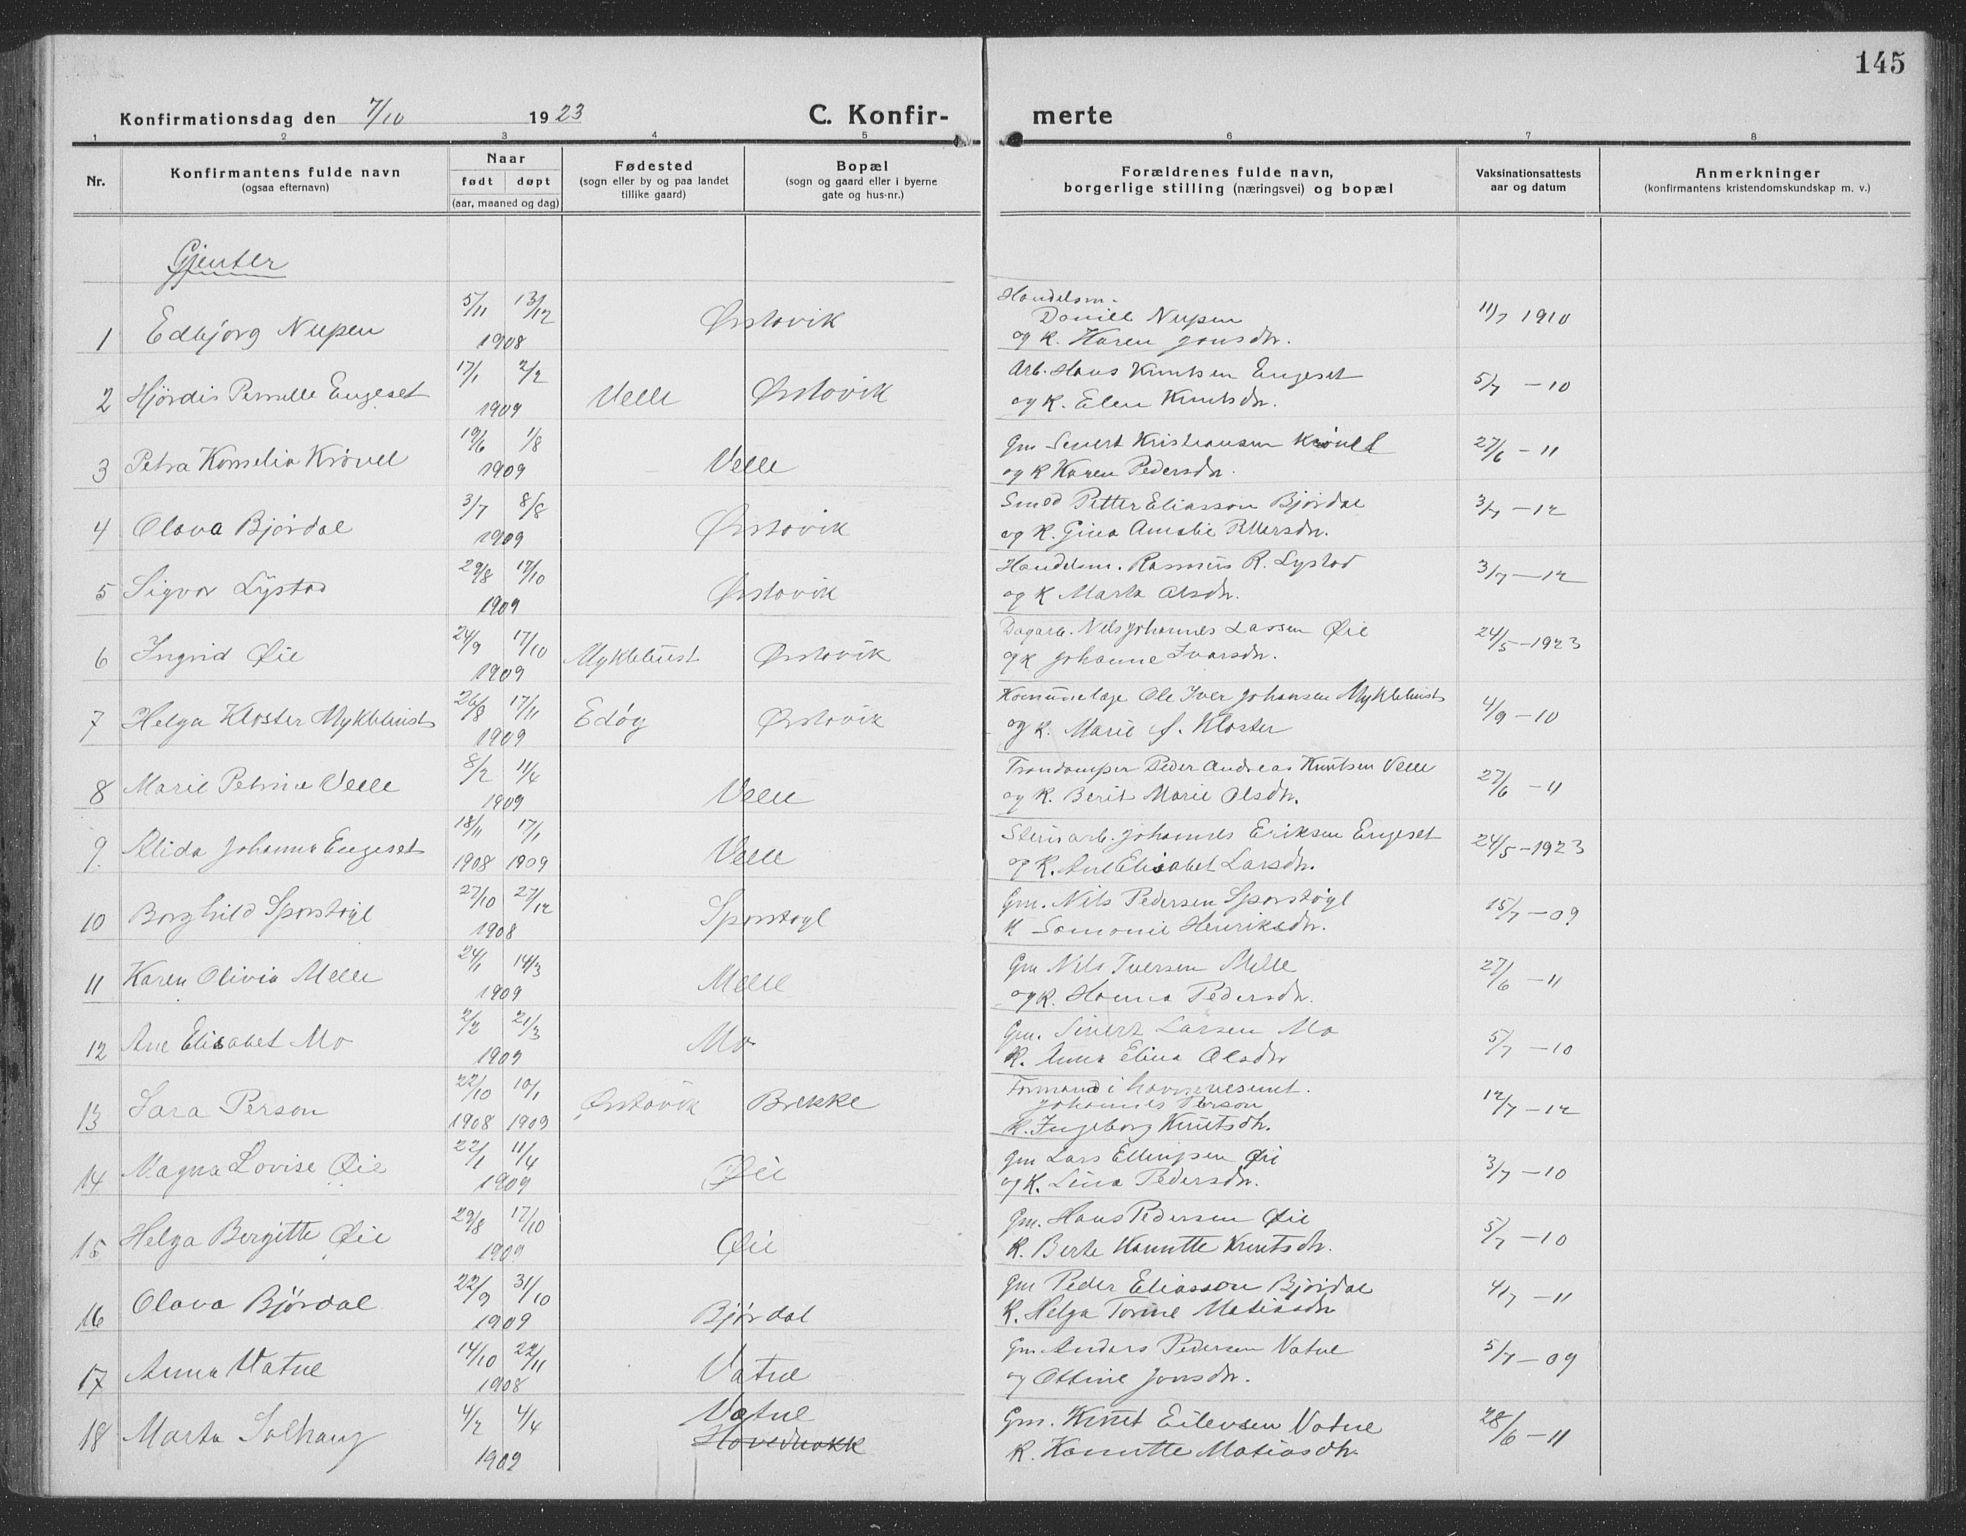 145
Konfirmationsdag den 7/10 1923 C. Konfir- merte
1 2 3 4 5 6 7 8
Nr. Konfirmantens fulde navn (ogsaa efternavn)
Naar født døpt (aar, maaned og dag)
Fødested (sogn eller by og paa landet tillike gaard)
Bopæl (sogn og gaard eller i byerne gate og hus-nr.)
Forældrenes fulde navn, borgerlige stilling (næringsvei) og bopæl
Vaksinationsattests aar og datum
Anmerkninger (konfirmantens kristendomskundskap m. v.)
Gjenter
1 Edbjørg Nupen 5/11 13/12 1908 Ørstavik Handelsm. Daniel Nupen og K. Karen Jonsdtr. 11/7 1910
2 Hjørdis Pernille Engeset 17/1 2/2 1909 Velle Ørstavik Arb. Hans Knutsen Engeset og K. Elen Knutsdr. 5/7 - 10
3 Petra Kornelia Krøvel 19/6 1/8 1909 Velle Gm Sivert Kristiansen Krøvel og K Karen Pedersdr. 27/6 - 11
4 Olava Bjørdal 3/7 8/8 1909 Ørstavik Smed Petter Eliasson Bjørdal og K. Gina Amalie Pettersdr. 3/7 - 12
5 Sigvor Lystad 29/8 17/10 1909 Ørstavik Handelsm. Rasmus R. Lystad og K Marta Olsdr. 3/7 - 12
6 Ingrid Øie 24/9 17/10 1909 Myklebust Ørstavik Dagarb. Nils Johannes Larsen Øie og K Johanne Ivarsdr. 24/5 - 1923
7 Helga Kloster Myklebust 26/8 17/11 1909 Edøy Ørstavik Komunelæge Ole Iver Johansen Myklebust og K. Marie f. Kloster 4/9 - 10
8 Marie Petrine Velle 8/2 11/4 1909 Velle Trandamper Peder Andreas Knutsen Velle og K. Berit Marie Olsdr. 27/6 - 11
9 Alida Johanna Engeset 18/11 17/1 1908 1909 Velle Stenarb. Johannes Eriksen Engeset og K. Ane Elisabet Larsdr. 24/5 - 1923
10 Borghild Sporstøyl 27/10 27/12 1908 Sporstøyl Gm. Nils Pedersen Sporstøyl K Samonie Henriksdr. 15/7 - 09
11 Karen Olivia Melle 24/1 14/3 1909 Melle Gm Nils Iversen Melle og K. Hanna Pedersdr. 27/6 - 11
12 Ane Elisabet Mo 2/2 21/3 1909 Mo Gm. Sivert Larsen Mo K. Anna Elina Olsdr 5/7 - 10
13 Sara Person 22/10 10/1 1908 1909 Ørstavik Brekke Formand i havnevesenet. Johannes Person K. Ingeborg Knutsdr. 12/7 - 12
14 Magna Lovise Øie 22/1 11/4 1909 Øie Gm Lars Ellingsen Øie og K. Lina Pedersdr. 3/7 - 10
15 Helga Bergitte Øie 29/8 17/10 1909 Øie Gm. Hans Pedersen Øie K. Berte Kanutte Knutsdr. 5/7 - 10
16 Olava Bjørdal 22/9 31/10 1909 Bjørdal Gm Peder Eliasson Bjørdal K. Helga Torine Matiasdr 4/7 - 11
17 Anna Vatne 14/10 22/11 1908 Vatne Gm. Anders Pedersen Vatne og Ottine Jonsdr. 5/7 - 09
18 Marta Solhaug 4/2 4/4 1909 Vatne Hovednakk Gm. Knut Eilevsen Vatne K. Kanutte Matiasdtr. 28/6 - 11